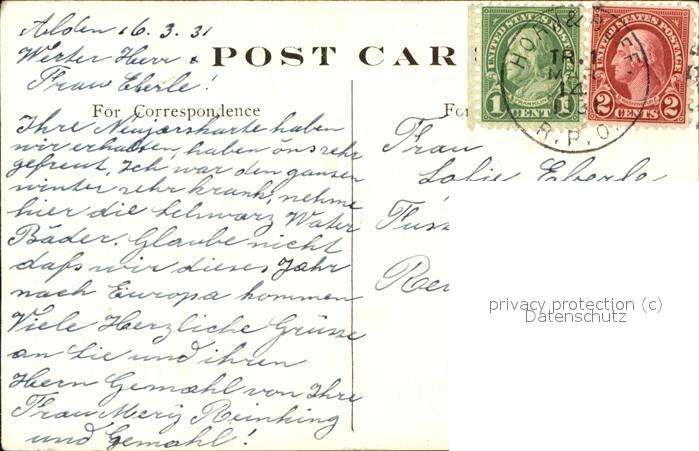 Alden 16.3.31
Werter Herr &
Frau Eberle!
POST CAR
For Correspondence
Ihre Neujarskarte haben
wir erhalten, haben uns sehr
gefreut, Ich war den ganzen
winter sehr krank, nehme
hier die Schwarz Water
Bäder. Glaube nicht
dass wir dieses Jahr
nach Europa kommen
Viele Herzliche Grüsse
an Sie und ihren
Herrn Gemahl von Ihre
Frau Mery Reinking
und Gemahl!
UNITED STATES POSTAGE
FRANKLIN
1 CENT 1
UNITED STATES POSTAGE
WASHINGTON
2 CENTS 2
TR.
R.P.O.
Fo
Frau
Sofie Eberle
privacy protection (c)
Datenschutz